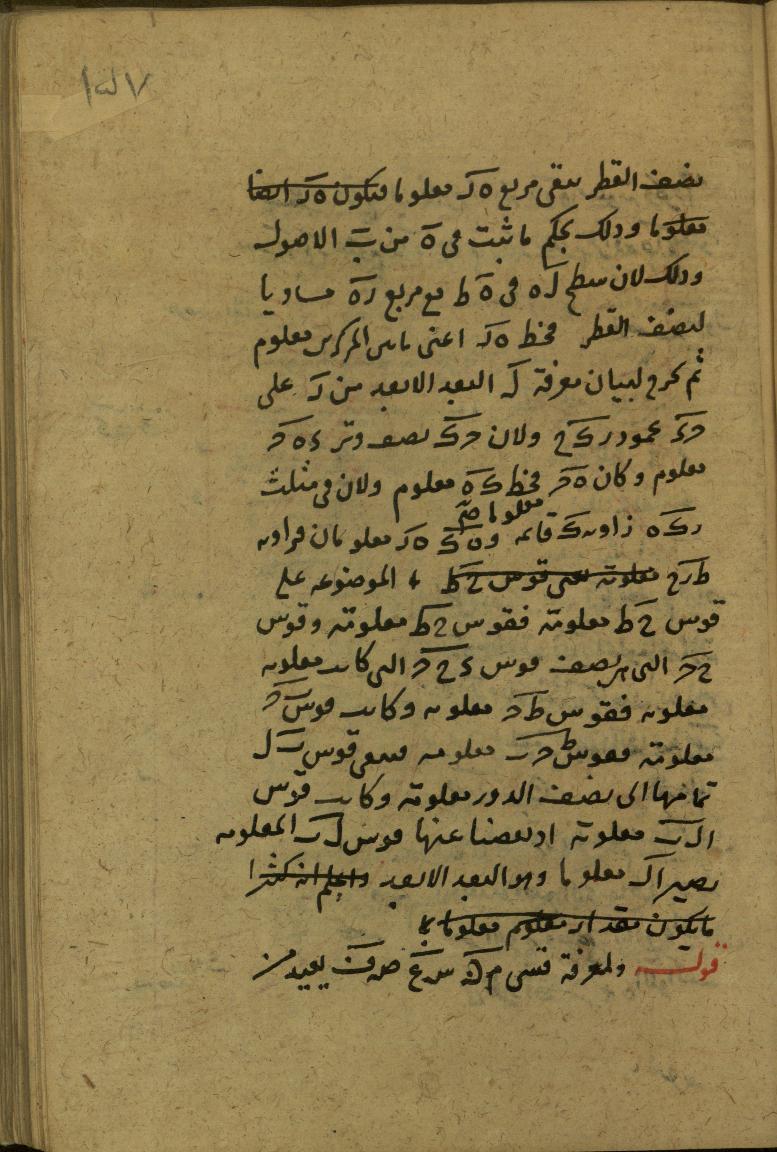 ١٥٧
نصف القطر يبقى مربع ه ر معلوما فيكون ه ر ايضا
معلوما وذلك بحكم ما ثبت فى ه من ب الاصول
وذلك لان سطح ل ه فى ه ط مع مربع ر ه مساويا
لنصف القطر فخط ه ر اعنى ما بين المركزين معلوم
ثم نخرج لبيان معرفة ل البعد الابعد من ر على
ح ء عمود ر ك ح ولان ح ك نصف وتر ء ه ح
معلوم وكان ه ح فخط ك ه معلوم ولان فى مثلث
معلوما صح
ر ك ه زاوية ك قائمة و ك ه ر معلومان فزاوية
ط ر ح معلومة اعنى قوس ح ط الموضوعة على
قوس ح ط معلومة فقوس ح ط معلومة وقوس
ح ح التى هى نصف قوس ء ح ح التى كانت معلومة
معلومة فقوس ط ح معلومة وكانت قوس ح
معلومة فقوس ط ح ب معلومة فيبقى قوس ب ل
تمامها الى نصف الدور معلومة وكانت قوس
ا ل ب معلومة اذ نقصنا عنها قوس ل ب المعلومة
يصير ا ل معلوما وهو البعد الابعد واعلم انه كثيرا
ما يكون مقدار معلوم معلوما
قوله ولمعرفة قسى م ن س ع ف يعيد من